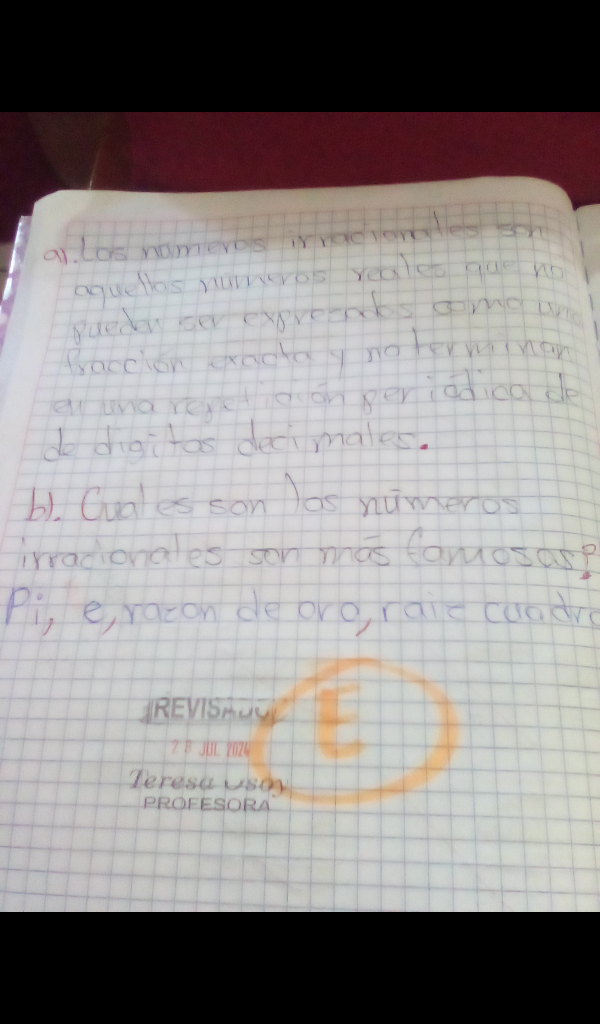 a). Los números irracionales son
aquellos números reales que no
pueden ser expresados como una
fracción exacta y no terminan
en una repetición periódica de
de digitos decimales.
b). Cuales son los números
irracionales son más famosos?
Pi, e, razon de oro, raiz cuadra
REVISADO
JUL 2024
Teresa
PROFESORA
E